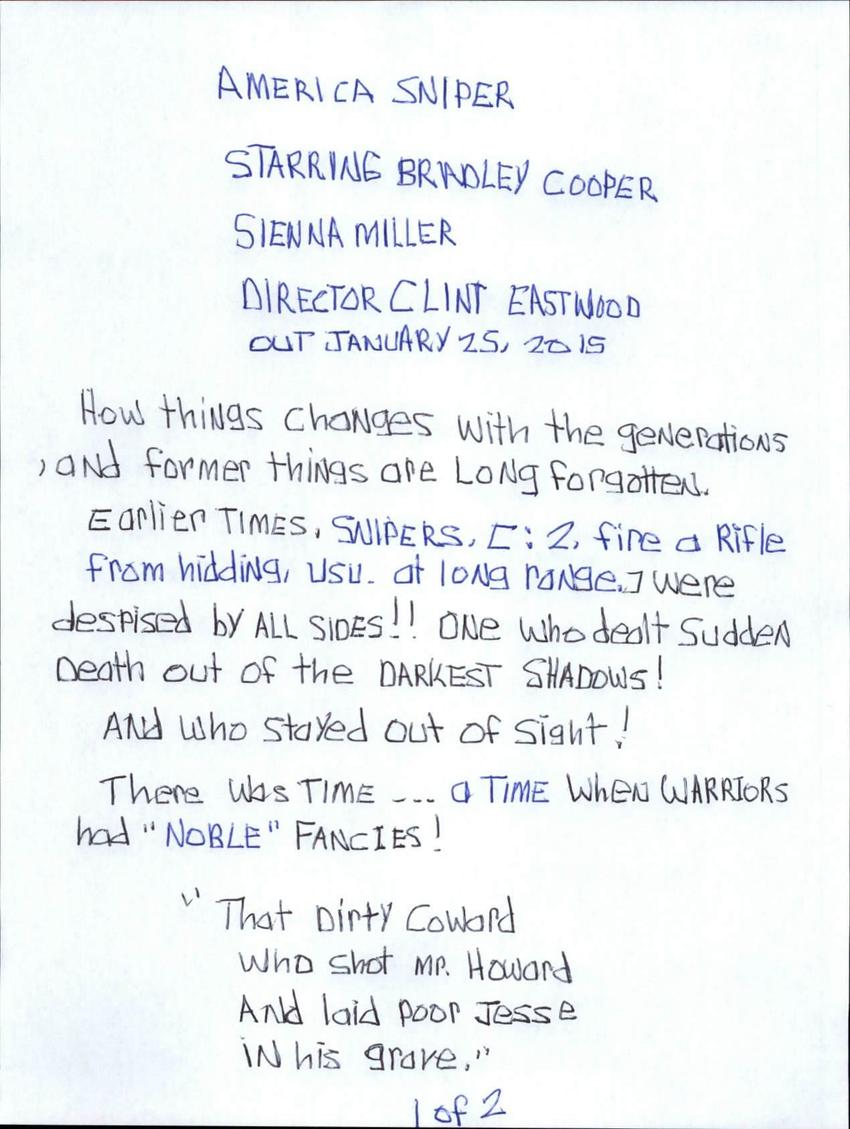 AMERICA SNIPER
STARRING BRADLEY COOPER
SIENNA MILLER
DIRECTOR CLINT EASTWOOD
OUT JANUARY 25, 2015
How things changes with the generations
, and former things are Long forgotten.
Earlier TIMES, SNIPERS, [: 2, fire a Rifle
from hidding, usu. at long range.] were
despised by ALL SIDES!! ONE who dealt Sudden
Death out of the DARKEST SHADOWS!
AND who stayed out of sight!
There was TIME --- a TIME WHEN WARRIORS
had "NOBLE" FANCIES!
"That Dirty Coward
who shot MR. Howard
And laid poor Jesse
IN his grave."
1 of 2